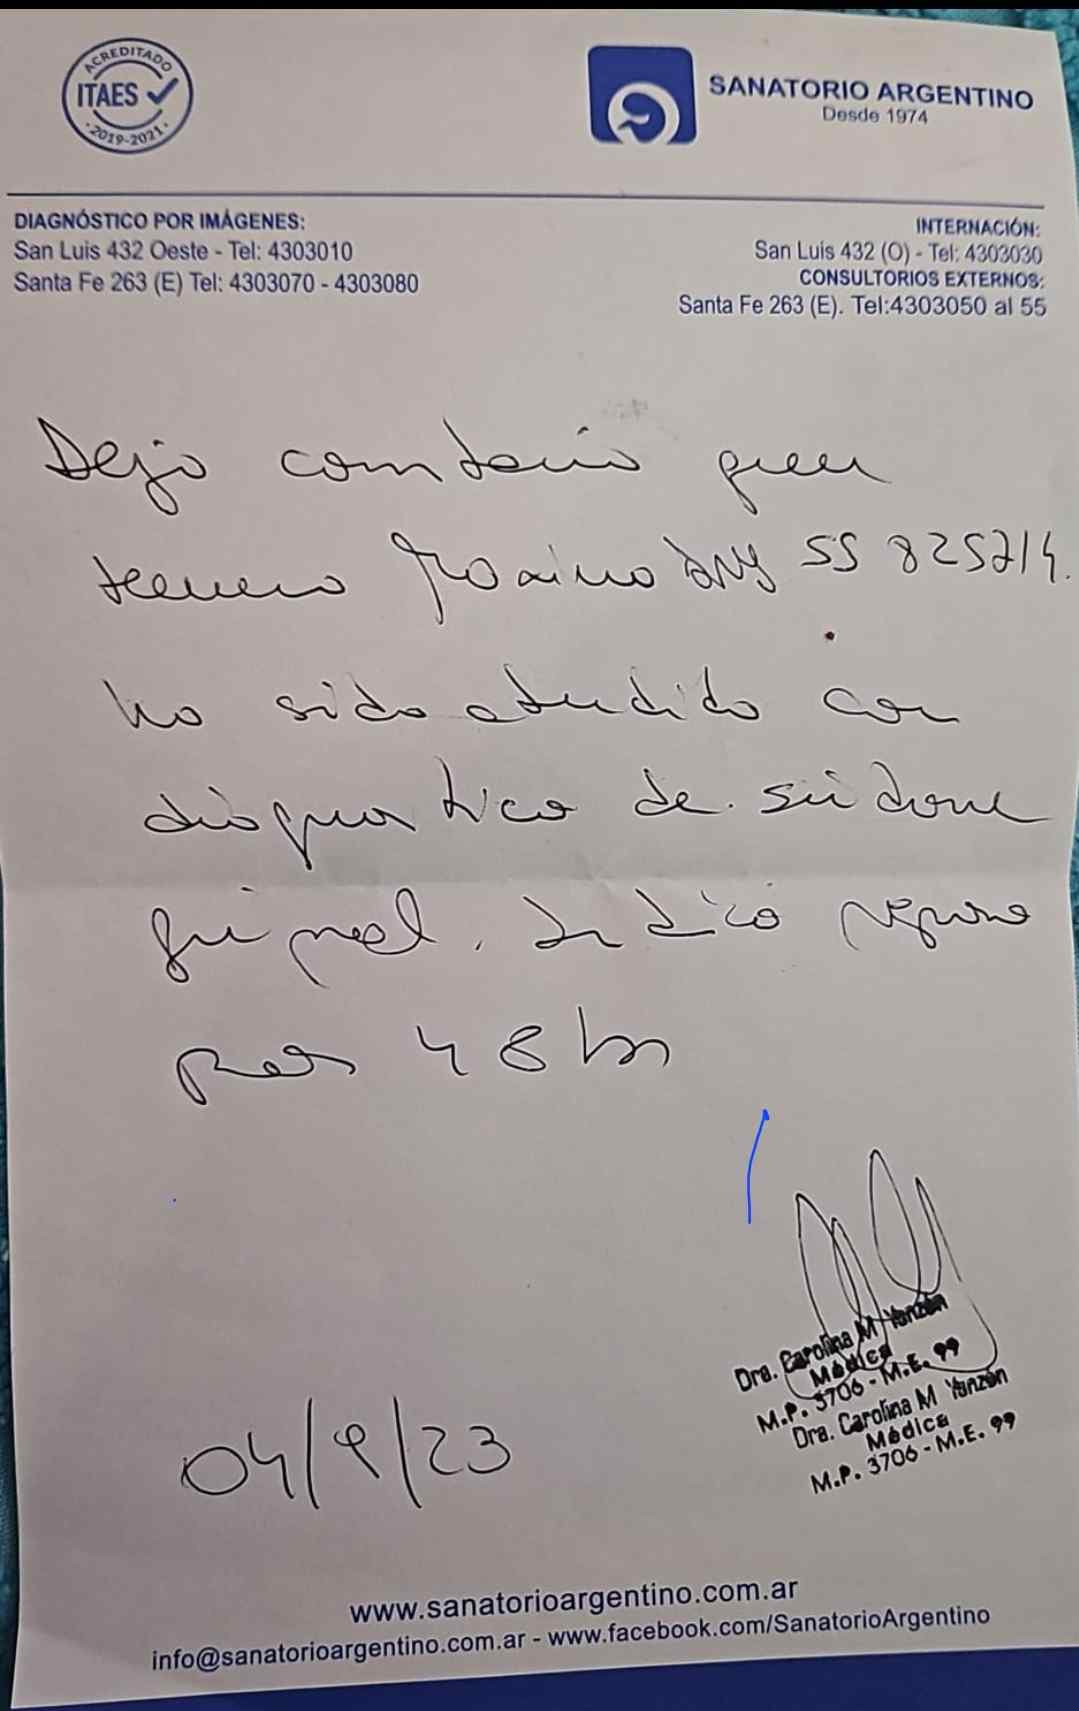 ACREDITADO
ITAES
2019-2021
SANATORIO ARGENTINO
Desde 1974
DIAGNÓSTICO POR IMÁGENES:
San Luis 432 Oeste - Tel: 4303010
Santa Fe 263 (E) Tel: 4303070 - 4303080
INTERNACIÓN:
San Luis 432 (O) - Tel: 4303030
CONSULTORIOS EXTERNOS:
Santa Fe 263 (E). Tel:4303050 al 55
Dejo constancia que
Maximo DNI 55 825714.
ha sido atendido con
diagnostico de sindrome
gripal. Indico reposo
por 48 hs
Dra. Carolina M Yanzón
Médica
M.P. 3706 - M.E. 99
Dra. Carolina M Yanzón
Médica
M.P. 3706 - M.E. 99
04/9/23
www.sanatorioargentino.com.ar
info@sanatorioargentino.com.ar - www.facebook.com/SanatorioArgentino